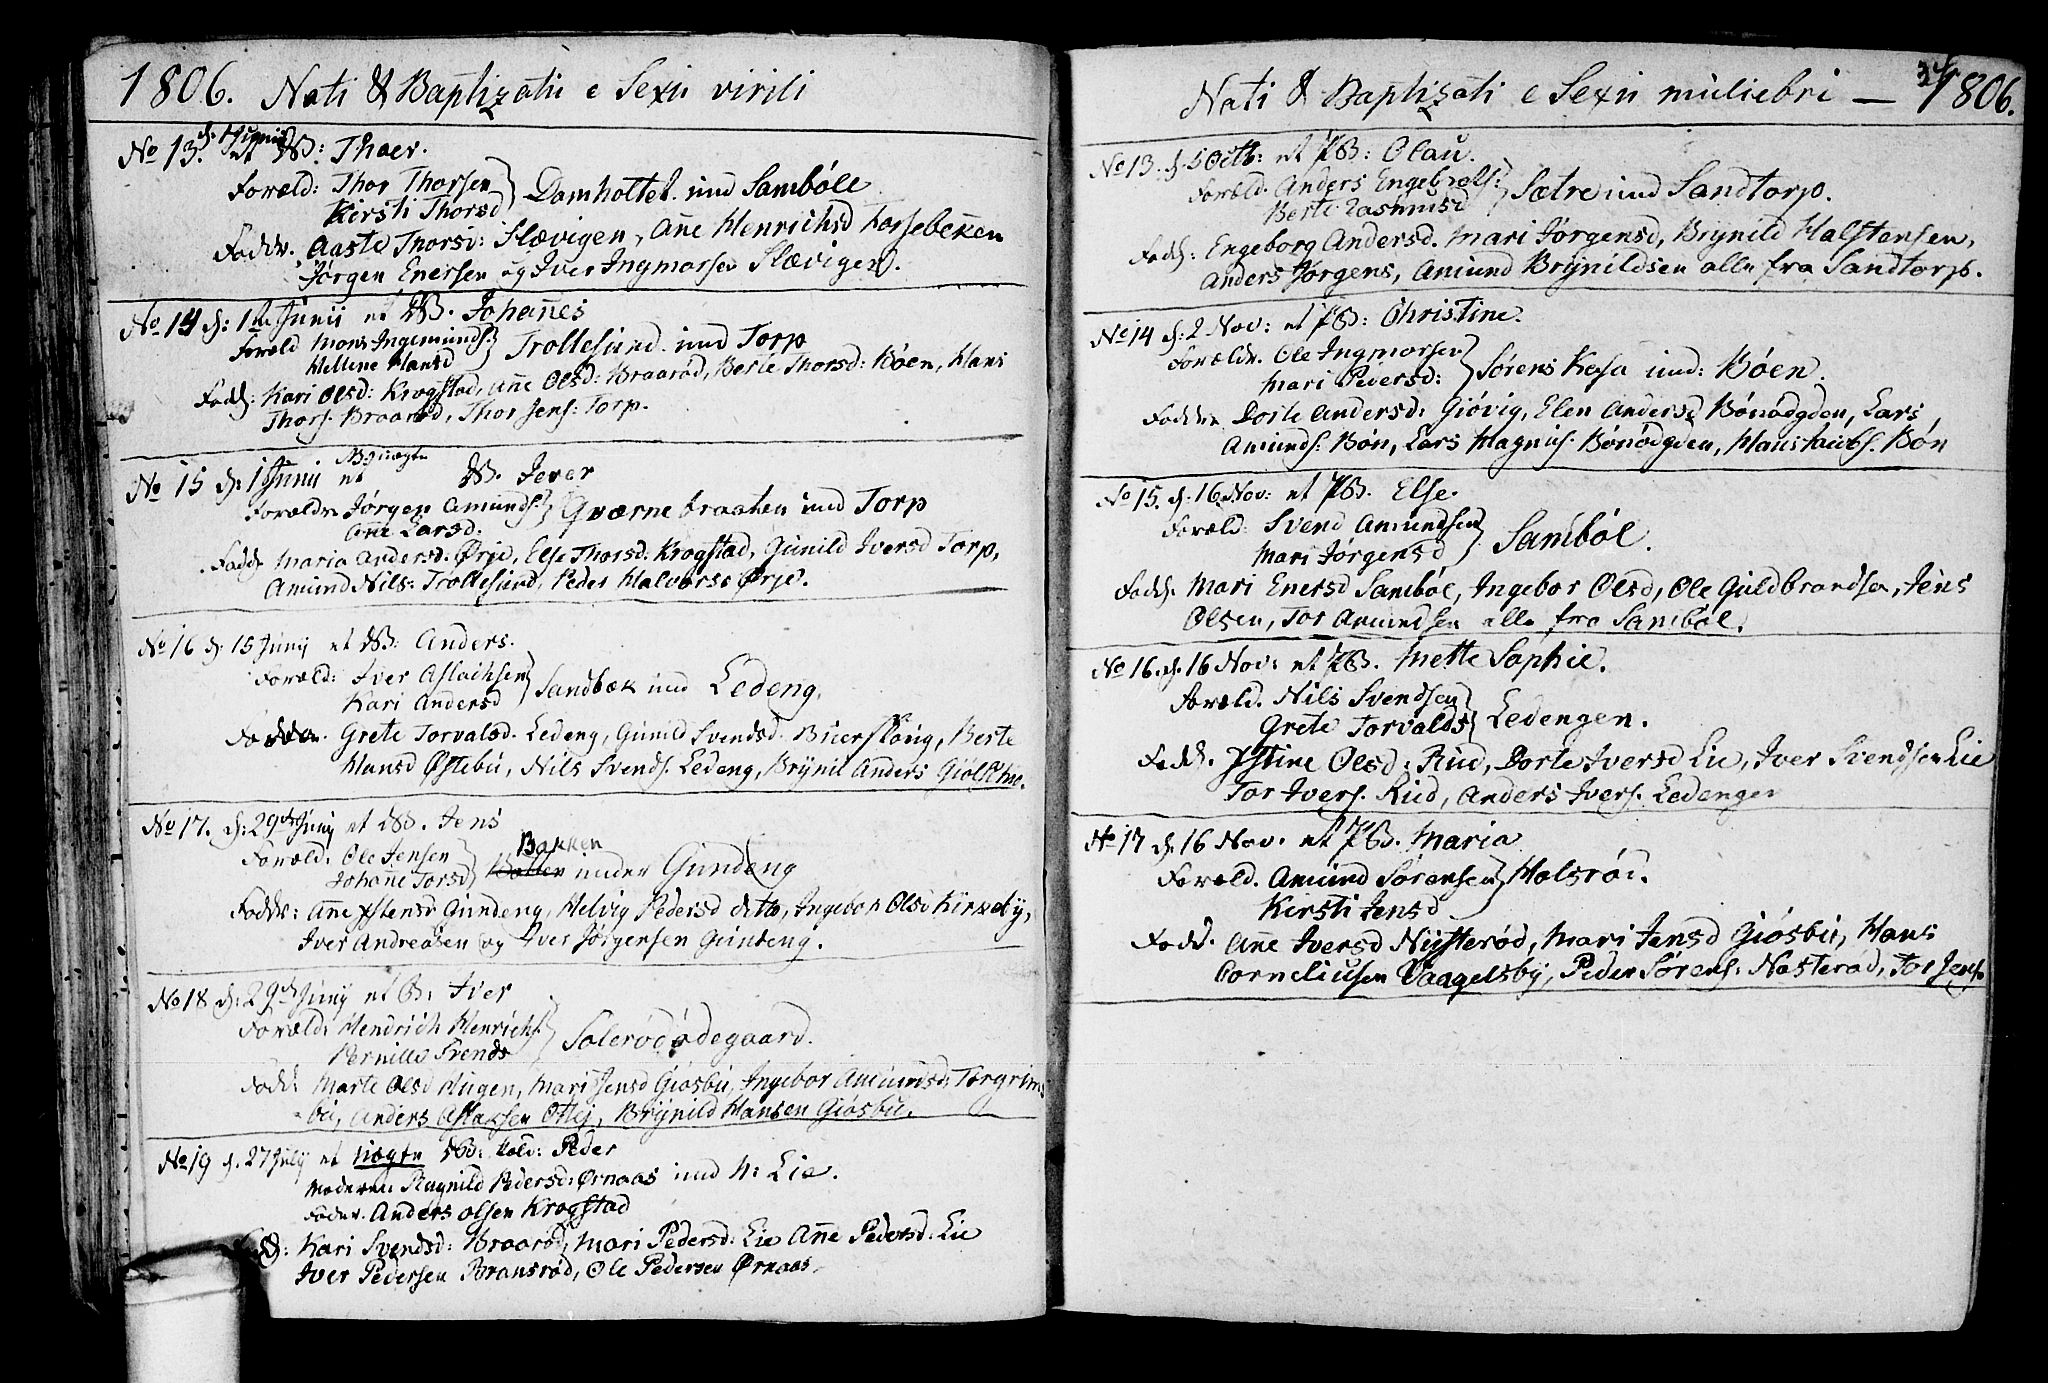 1806. Nati & Baptizati e Sexu virili
No 13. d. 1 Junii et WB: Thoer.
Foræld: Thor Thorsen
Kirsti Thorsd } Damholtet und Sambøle
Faddr. Aaste Thorsd: Slævigen, Añe Henrichsd Forsebeken
Jørgen Enersen og Iver Ingmorsen Slævigen.
No 14 d: 1te Junii et WB. Johañes
Foræld Mons Ingemunds:
Hellene Hansd } Trollesund und Torp
Fadd: Kari Olsd: Krogstad, Añe Olsd: Braarød, Berte Thorsd: Bøen, Hans
Thors. Braarød, Thor Jens: Torp.
No 15 d: 1 Junii et WB. Iever
Forældr Jørgen Amunds:
Añe Larsd. } Qværnebraaten und Torp
Fadd. Maria Andersd: Ørje, Else Thorsd. Krogstad, Gunild Iversd Torp,
Amund Nils: Trollesund, Peder Halvorse Ørje.
No 16 d. 15 Junij et WB. Anders.
Foræld: Iver Aslachsen
Kari Andersd } Sandbæk und Ledeng.
Faddr. Grete Torvalsd. Ledeng, Gunild Svendsd. Buersköug, Berte
Hansd Østebu, Nils Svends. Ledeng, Brynil Anders Giølstue.
No 17. d: 29de Junij et WB. Jens
Foræld: Ole Jensen
Johañe Torsd } Bakken under Gundeng
Faddr: Añe Ostensd Gundeng, Helvig Pedersd ditto, Ingebor Olsd Kirkeby,
Iver Andreasen og Iver Jørgensen Gundeng.
No 18 d: 29de Junij et B: Iver
Foræld: Hendrich Henrichs.
Pernille Svends } Solerødødegaard.
Fadd: Marte Olsd Hugen, Mari Jensd Giøsbu, Ingebor Amundsd: Torgrims
bu, Anders Aslaksen Otlej, Brynild Hansen Giøsbu.
No 19 d. 27 July et uægte WB: kald: Peder
Moderen Ragnild Pedersd: Ørnaas und N: Lie.
Fader. Anders Olsen Krogstad
Fadd: Kari Svendsd: Braarød, Mari Pedersd: Lie Añe Pedersd: Lie
Iver Pedersen Bransrød, Ole Pedersen Ørnaas.
Nati & Baptizati e Sexu muliebri — 1806.
No 13. d. 5 Octb: et PB: Olau.
Foræld. Anders Engebrets:
Berte Rasmusd } Sætre und Sandtorp.
Fadd: Engeborg Andersd. Mari Jørgensd, Brynild Halstensen,
Anders Jørgens, Amund Brynildsen alle fra Sandtorp.
No 14 d. 2 Nov: et PB: Christine.
Forældr. Ole Ingmorsen
Mari Pedersd: } Sørens Kasa und: Bøen.
Faddr. Dorte Andersd: Giøvig, Elen Andersd Bønødgden, Lars
Amunds: Bøn, Lars Magnus. Bønødgden, Hans Jacobs. Bøn
No 15. d. 16 Nov: et PB. Else.
Foræld: Svend Amundsen
Mari Jørgensd } Sambøl.
Fadd. Mari Enersd Sambøl, Ingebor Olsd, Ole Guldbrandsen, Jens
Olsen, Tor Amundsen alle fra Sambøl.
No 16. d. 16 Nov: et PB. Mette Sophie.
Foræld. Nils Svendsen
Grete Torvalds } Ledengen.
Fadd. Ostine Olsd: Rud, Dorte Iversd Lie, Iver Svendsen Lie
Tor Ivers. Rud, Anders Ivers. Ledengen
No 17 d. 16 Nov. et PB. Maria
Foræld. Amund Sørensen
Kirsti Jensd } Holsrøi.
Fadd. Añe Iversd Nysterød, Mari Jensd Giøsbu, Hans
Corneliusen Vaagelsby, Peder Sørens: Nosterød, Tor Jens.